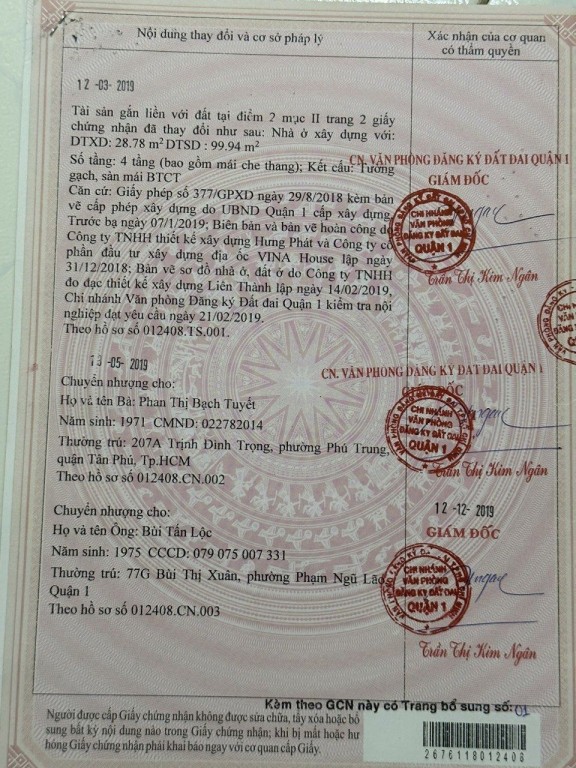 Nội dung thay đổi và cơ sở pháp lý
Xác nhận của cơ quan
có thẩm quyền
12 -03- 2019
Tài sản gắn liền với đất tại điểm 2 mục II trang 2 giấy
chứng nhận đã thay đổi như sau: Nhà ở xây dựng với:
DTXD: 28.78 m² DTSD : 99.94 m²
Số tầng: 4 tầng (bao gồm mái che thang); Kết cấu: Tường
gạch, sàn mái BTCT
Căn cứ: Giấy phép số 377/GPXD ngày 29/8/2018 kèm bản
vẽ cấp phép xây dựng do UBND Quận 1 cấp xây dựng,
Trước bạ ngày 07/1/2019; Biên bản và bản vẽ hoàn công do
Công ty TNHH thiết kế xây dựng Hưng Phát và Công ty cổ
phần đầu tư xây dựng địa ốc VINA House lập ngày
31/12/2018; Bản vẽ sơ đồ nhà ở, đất ở do Công ty TNHH
đo đạc thiết kế xây dựng Liên Thành lập ngày 14/02/2019,
Chi nhánh Văn phòng Đăng ký Đất đai Quận 1 kiểm tra nội
nghiệp đạt yêu cầu ngày 21/02/2019.
Theo hồ sơ số 012408.TS.001.
CN. VĂN PHÒNG ĐĂNG KÝ ĐẤT ĐAI QUẬN 1
GIÁM ĐỐC
CHI NHÁNH
VĂN PHÒNG
ĐĂNG KÝ ĐẤT ĐAI
QUẬN 1
Trần Thị Kim Ngân
13 -05- 2019
Chuyển nhượng cho:
Họ và tên Bà: Phan Thị Bạch Tuyết
Năm sinh: 1971 CMND: 022782014
Thường trú: 207A Trịnh Đình Trọng, phường Phú Trung,
quận Tân Phú, Tp.HCM
Theo hồ sơ số 012408.CN.002
CN. VĂN PHÒNG ĐĂNG KÝ ĐẤT ĐAI QUẬN 1
GIÁM ĐỐC
CHI NHÁNH
VĂN PHÒNG
ĐĂNG KÝ ĐẤT ĐAI
QUẬN 1
Trần Thị Kim Ngân
Chuyển nhượng cho:
Họ và tên Ông: Bùi Tấn Lộc
Năm sinh: 1975 CCCD: 079 075 007 331
Thường trú: 77G Bùi Thị Xuân, phường Phạm Ngũ Lão,
Quận 1
Theo hồ sơ số 012408.CN.003
12 -12- 2019
GIÁM ĐỐC
CHI NHÁNH
VĂN PHÒNG
ĐĂNG KÝ ĐẤT ĐAI
QUẬN 1
Trần Thị Kim Ngân
Kèm theo GCN này có Trang bổ sung số: 01
Người được cấp Giấy chứng nhận không được sửa chữa, tẩy xóa hoặc bổ
sung bất kỳ nội dung nào trong Giấy chứng nhận; khi bị mất hoặc hư
hỏng Giấy chứng nhận phải khai báo ngay với cơ quan cấp Giấy.
2676118012408